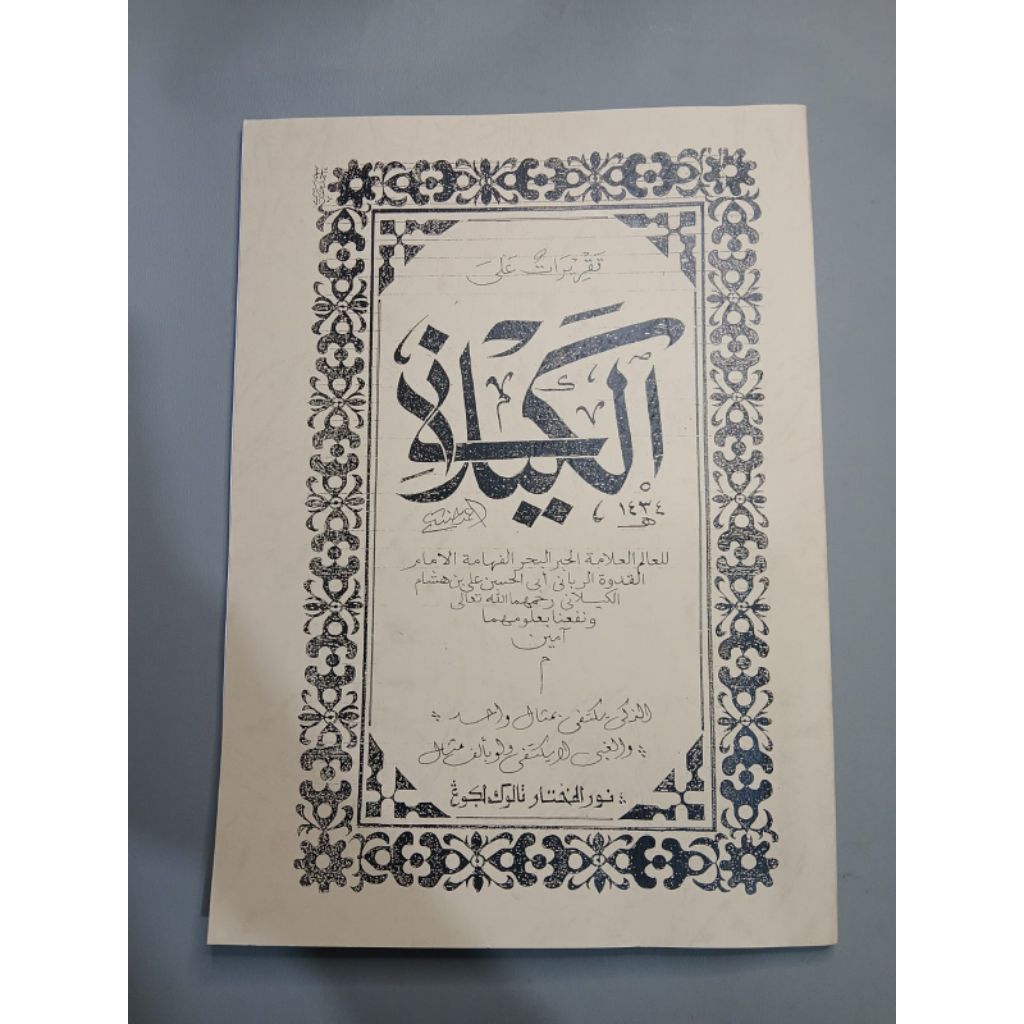 تَقْرِيْرَاتٌ عَلَىَ
الكيلاني
١٤٣٤ هـ
للعالم العلامة الحبر البحر الفهامة الامام
القدوة الربانى أبى الحسن على بن هشام
الكيلانى رحمهما الله تعالى
ونفعنا بعلومهما
آمين
م
الذكى يكتفى بمثال واحد
والغبى لا يكتفى ولو بألف مثال
نور المختار